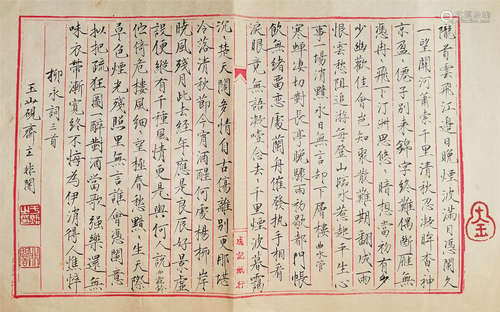 隴首雲飛江邊日晚煙波滿目憑闌久
一望關河蕭索千里清秋忍凝眸杳々神
京盈々僊子別來錦字終難偶斷雁無
憑冉々飛下汀洲思悠々暗想當初有多
少幽歡佳會豈知聚散難期翻成雨
恨雲愁阻追游每登山臨水惹起平生心
事一場消黯永日無言却下層樓 曲玉管
寒蟬淒切對長亭晚驟雨初歇都門帳
飲無緒留戀處蘭舟催發執手相看
淚眼竟無語凝噎念去々千里煙波暮靄
沉々楚天闊多情自古傷離別更那堪
冷落清秋節今宵酒醒何處楊柳岸
曉風殘月此去經年應是良辰好景虛
設便縱有千種風情更與何人說 雨霖鈴
佇倚危樓風細々望極春愁黯々生天際
草色煙光殘照里無言誰會憑闌意
拟把疏狂圖一醉對酒當歌強樂還無
味衣帶漸寬終不悔為伊消得人憔悴
柳永詞三首
玉山硯齋主非闇
成記紙行